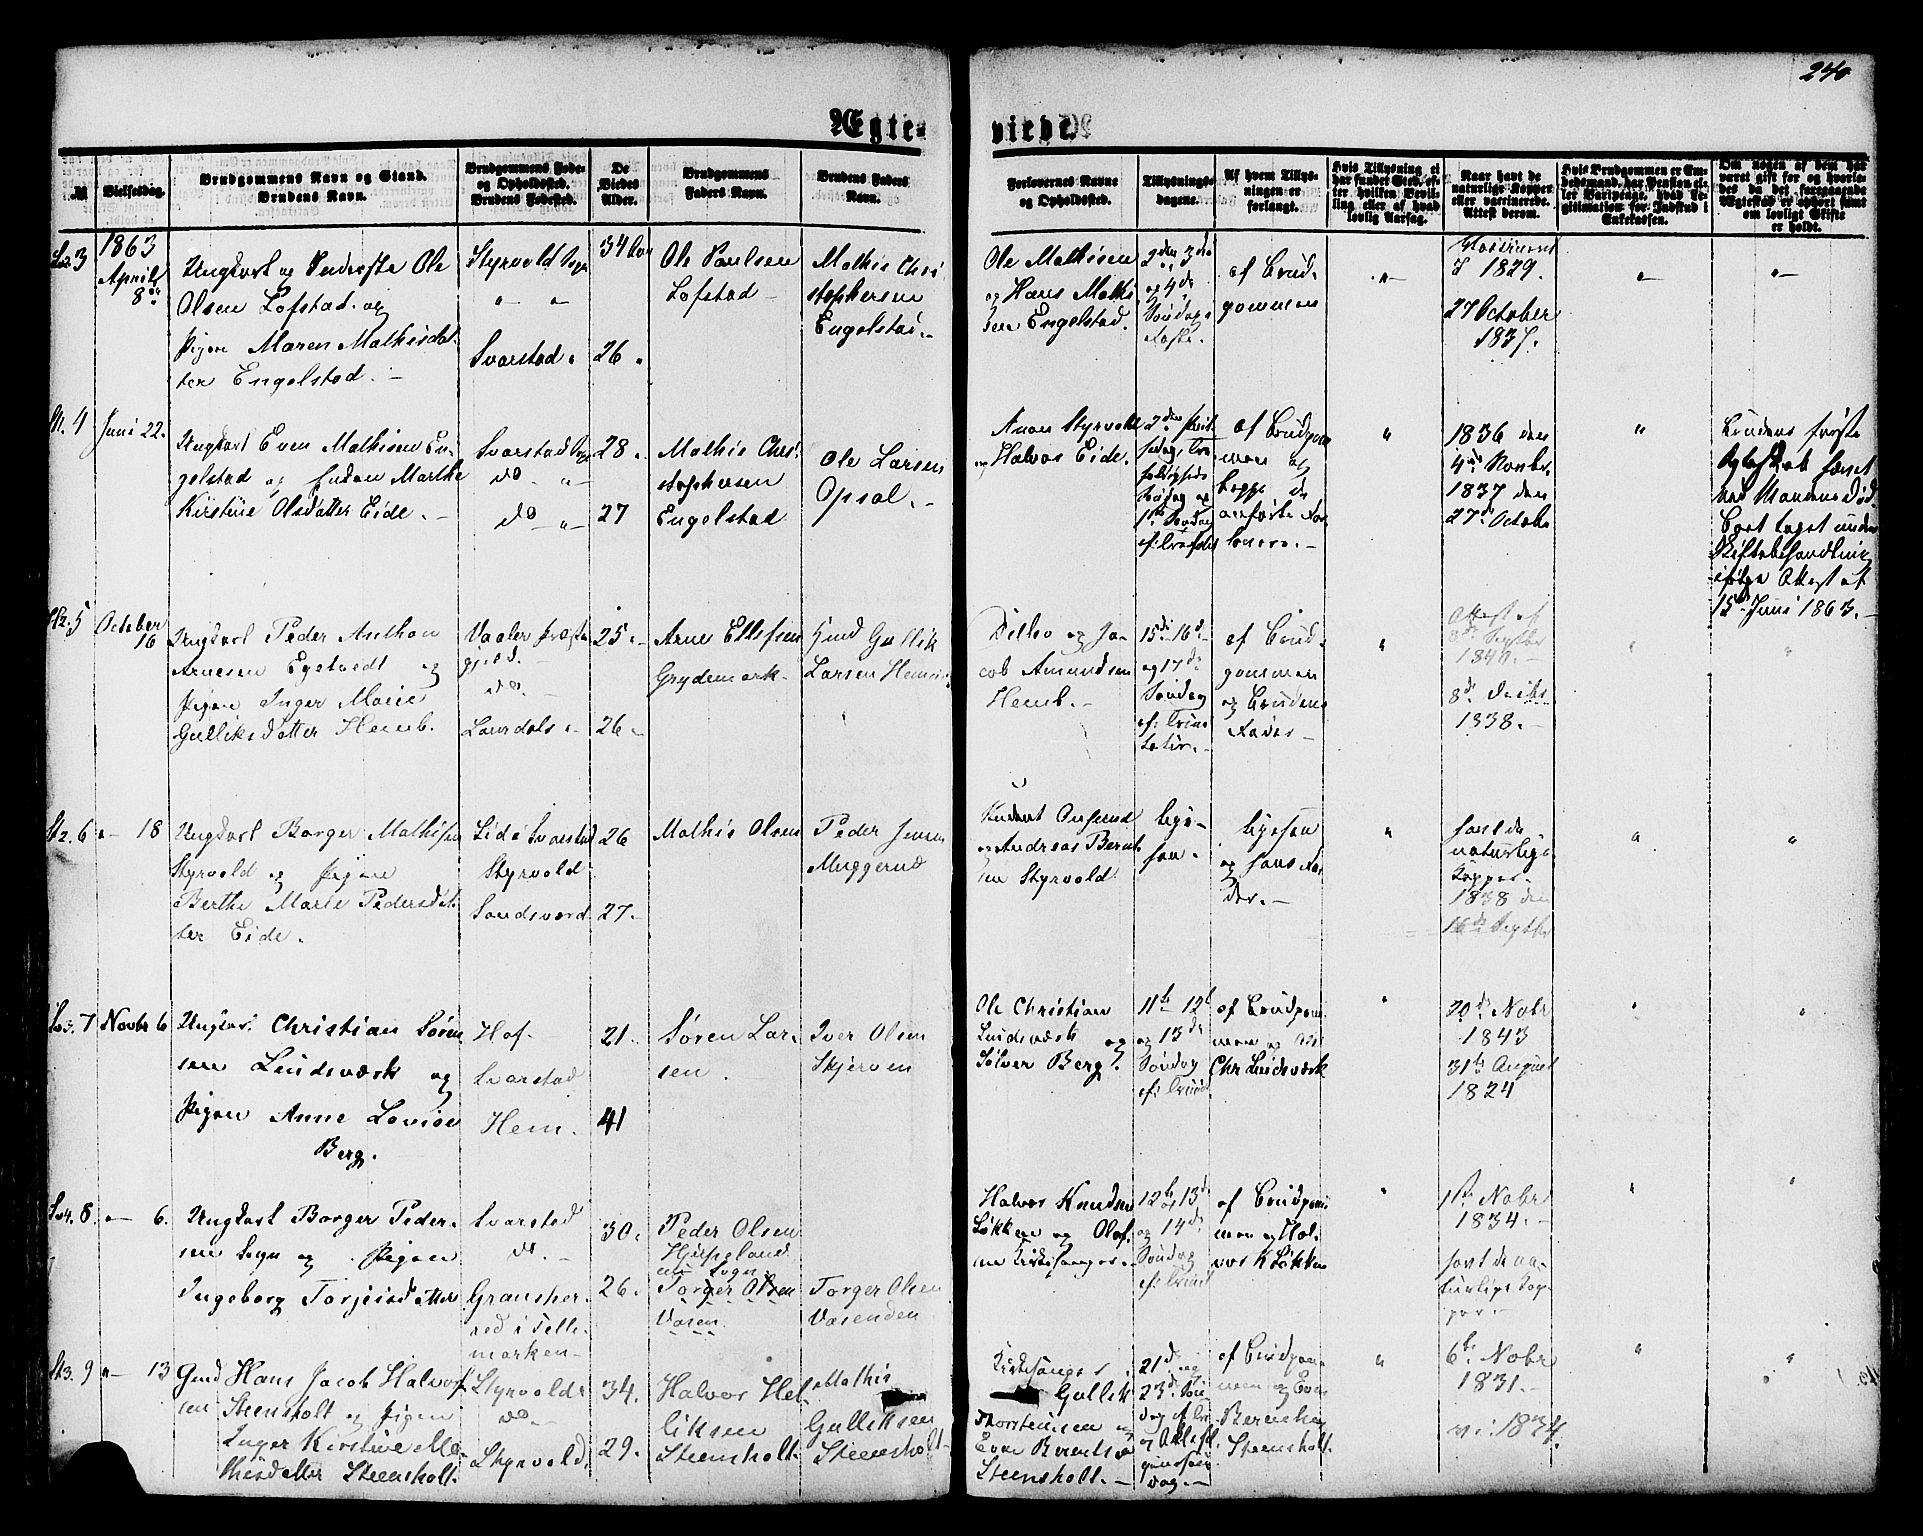 240
Ægte-
viede.
№
Vielsesdag.
Brudgommens Navn og Stand.
Brudens Navn.
Brudgommens Føde-
og Opholdssted.
Brudens Fødested.
De
Viedes
Alder.
Brudgommens
Faders Navn.
Brudens Faders
Navn.
Forlovernes Navne
og Opholdssted.
Tillysnings-
dagene.
Af hvem Tillys-
ningen er
forlangt.
Hvis Tillysning ei
har fundet Sted, ef-
ter hvilken Bevil-
ling eller af hvad
lovlig Aarsag.
Naar havt de
naturlige Kopper
eller vaccinerede.
Attest derom.
Hvis Brudgommen er Em-
bedsmand, har Pension el-
ler Vartpenge, hvad Le-
gitimation for Indskud i
Enkekassen.
Om nogen af dem har
været gift før og hvorle-
des da det foregaaende
Ægteskab er ophørt samt
om lovligt Skifte
er holdt.
3
1863
April
8de
Ungkarl og Inderste Ole
Olsen Lofstad og
Pigen Maren Mathisdat-
ter Engelstad.
Styrvold Sogn
" "
Svarstad
34 Aar
26
Ole Paulsen
Lofstad
Mathis Chri
stophersen
Engelstad
Ole Mathisen
og Hans Mathi
sen Engelstad.
2den 3die
og 4de
Søndag i
Faste.
af Brud-
gommen
"
1829.
27 October
1837.
"
"
4
Juni 22.
Ungkarl Even Mathisen En-
gelstad og Enken Marthe
Kirstine Olsdatter Eide.
Svarstad Sogn
do "
do "
28
27
Mathis Chri
stophersen
Engelstad
Ole Larsen
Opsal.
Styrvold
og Halvor Eide.
af Brudgom
men og
begge de
anførte For
lovere.
"
1836 den
4de Novbr
1837 den
27de October
"
Brudens første
Ægteskab hævet
ved Mandens Død
Boet taget under
Skiftebehandling
ifølge Attest af
15de Juni 1863.
5
October
16
Ungkarl Peder Anthon
Arnesen Egstvedt og
Pigen Inger Marie
Gulliksdatter Hemb.
Vaaler Præste
gjeld.
do.
Laurdals
25
26
Arne Ellefsen
Grydemork
Gullik
Larsen Hem
Ditlev og Ja-
cob Amundsen
Hemb.
15de 16de
og 17de
Søndag
ef: Trini
tatis.
af Brud-
gommen
og Brudens
Fader
"
Attest af
3de Septbr
1840.
8de Decbr
1838.
"
"
6
" 18
Ungkarl Borger Mathisen
Styrvold og Pigen
Berthe Marie Pedersdat-
ter Eide.
Eide i Svarstad
Styrvold
Sandsværd
26
27
Mathis Olsen
Peder Jensen
Muggerud
og Andreas Bernt
sen Styrvold
lige-
saa.
ligesaa
og hans Fa
der.
"
havt de
naturlige
Kopper
1838 den
16de Septbr
"
"
7
Novbr 6
Ungkarl Christian Søren
sen Lindsværk og
Pigen Anne Lovise
Berg.
Hof
Svarstad
Hem.
21
41
Søren Lar-
sen
Iver Olsen
Skjerven
Ole Christian
Lindsværk og
Sølver Berg.
11te 12te
og 13de
Søndag
ef: Trinit.
af Brudgom
men og
Chr Lindsværk
"
20de Novbr
1843
31te August
1824
"
"
8.
" 6.
Ungkarl Borger Peder-
sen Sogn og Pigen
Ingeborg Torjersdatter
Svarstad
do.
Gransher-
red i Telle-
marken
30.
26.
Peder Olsen
Hjupeland
Sogn
Torger Olsen
Vasen
Torger Olsen
Vasenden
Halvor Knudsen
Løkken og Olaf-
sen Kirkesanger.
12te 13de
og 14de
Søndag
ef: Trinit
af Brudgom
men og Hal-
vor K Løkken
"
1ste Novbr
1834.
havt de na-
turlige Kop-
per
"
"
9
" 13
Gmd Hans Jacob Halvor-
sen Steensholt og Pigen
Inger Kirstine Ma-
thisdatter Steensholt.
Styrvold
do.
Styrvold
34.
29.
Halvor Hel-
liksen
Steensholt.
Mathis
Gulliksen
Steensholt
Kirkesanger
Gullik
Thorstensen og
Even Berentsen
Steensholt.
21de og
23de Søn-
dag ef Tri
af Brudgom
men og Even
Berentsen
Steensholt.
"
6te Novbr
1831.
1834.
"
"